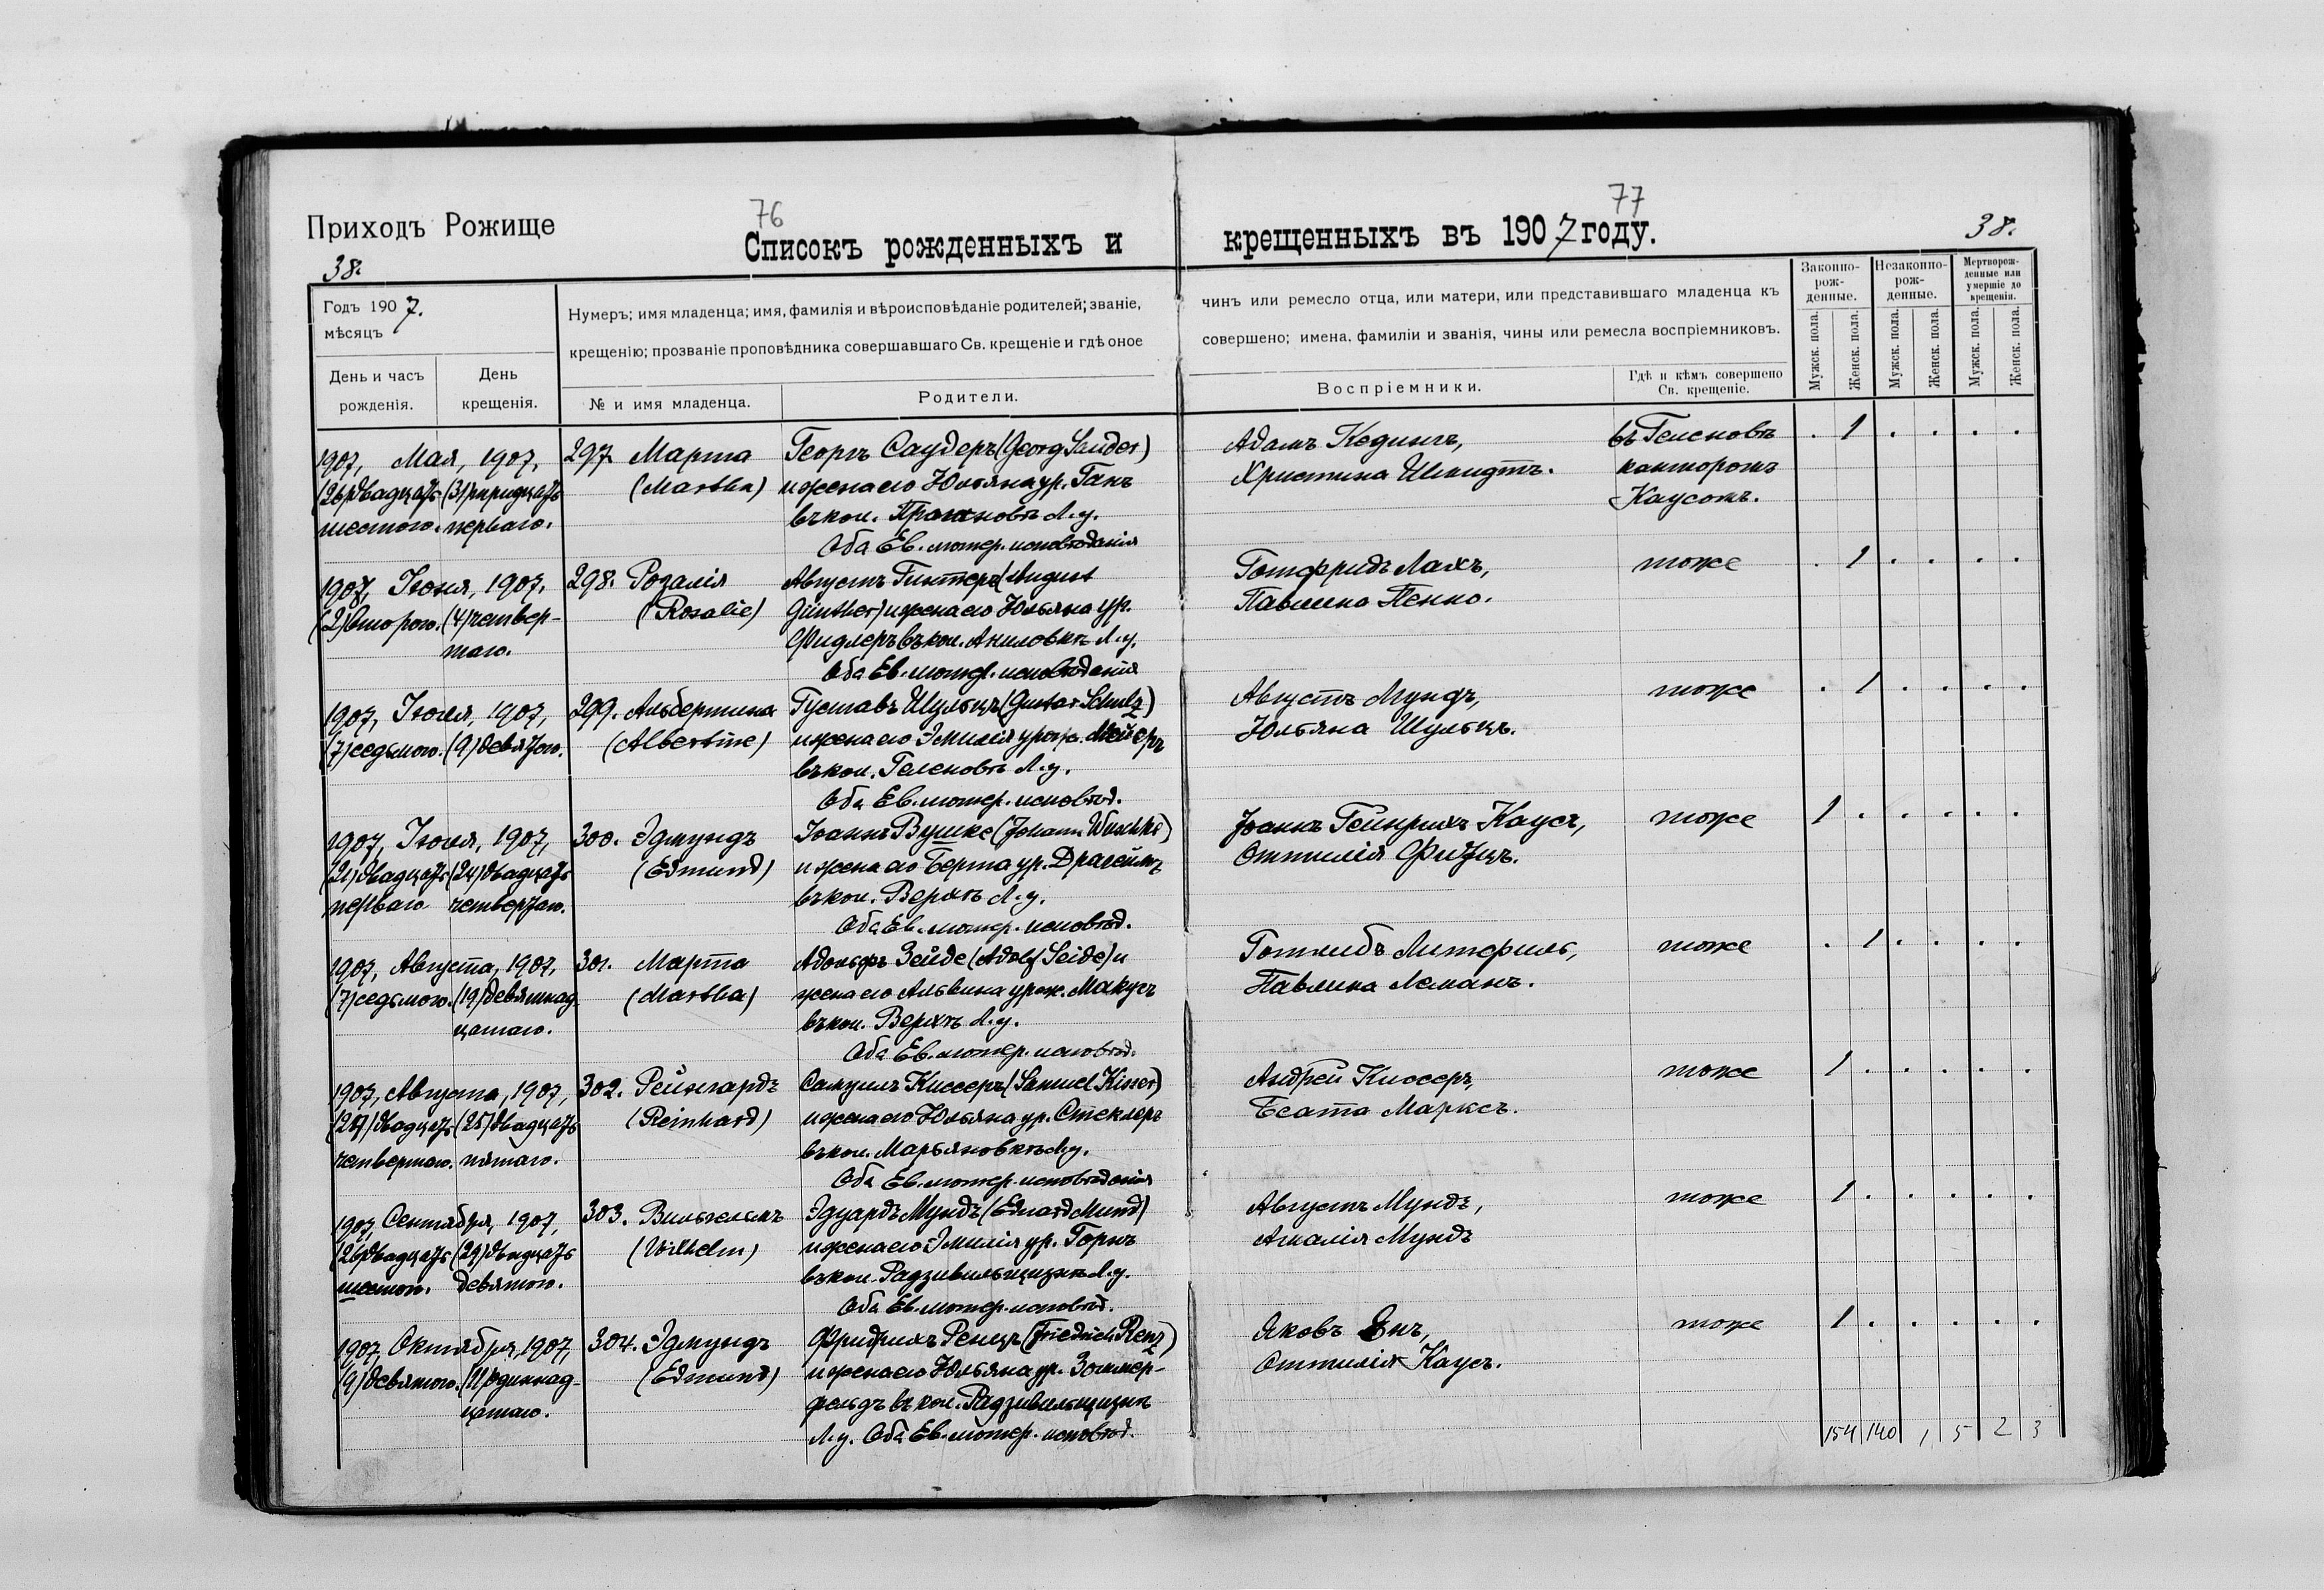 76
77
Приходъ Рожище
Списокъ рожденныхъ и крещенныхъ въ 1907 году.
38.
38.
Годъ 1907.
мѣсяцъ
День и часъ рожденія.
День крещенія.
Нумеръ; имя младенца; имя, фамилія и вѣроисповѣданіе родителей; званіе,
крещенію; прозваніе проповѣдника совершавшаго Св. крещеніе и гдѣ оное
№ и имя младенца.
Родители.
чинъ или ремесло отца, или матери, или представившаго младенца къ
совершено; имена, фамиліи и званія, чины или ремесла воспріемниковъ.
Воспріемники.
Гдѣ и кѣмъ совершено
Св. крещеніе.
Законно-
рож-
денные.
Незаконно-
рож-
денные.
Мертворож-
денные или
умершіе до
крещенія.
Мужск. пола.
Женск. пола.
Мужск. пола.
Женск. пола.
Мужск. пола.
Женск. пола.
1907, Мая, 1907,
(26) двадцать (31) тридцать
шестого. перваго.
297. Марта
(Martha)
Георгъ Саудеръ (Georg Sauder)
и жена его Юльяна ур. Ганъ
въ кол. Л. у.
Оба Ев. лютер. исповѣданія
Адамъ Кединъ,
Христина Шмидтъ.
въ Геленовѣ
канторомъ
Каусомъ.
. 1 . . . .
1907, Іюня, 1907.
(2) второго. (4) четвер-
таго.
298. Розалія
(Rosalie)
Августъ Гинтеръ (August
Günther) и жена его Юльяна ур.
Фидлеръ въ кол. Аниловкѣ Л. у.
Оба Ев. лютер. исповѣданія
Готфридъ Лахъ,
Павлина Пенно.
тоже
. 1 . . . .
1907, Іюля, 1907,
(7) седьмого. (9) девятого.
299. Альбертина
(Albertine)
Густавъ Шульцъ (Gustav Schulz)
и жена его Эмилія урож. Мейеръ
въ кол. Геленовѣ Л. у.
Оба Ев. лютер. исповѣд.
Августъ Мундъ,
Юльяна Шульцъ.
тоже
. 1 . . . .
1907, Іюля, 1907,
(21) двадцать (24) двадцать
перваго четвертаго.
300. Эдмундъ
(Edmund)
Іоаннъ Вушке (Johann Wuschke)
и жена его Берта ур. Драгеймъ
въ кол. Верхѣ Л. у.
Оба Ев. лютер. исповѣд.
Іоаннъ Гейнрихъ Каусъ,
Оттилія Фитцъ.
тоже
1 . . . . .
1907, Августа, 1907,
(7) седьмого. (19) девятнад
цатаго.
301. Марта
(Martha)
Адольфъ Зейде (Adolf Seide) и
жена его Альвина урож. Макусъ
въ кол. Верхѣ Л. у.
Оба Ев. лютер. исповѣд.
Готлибъ Литфинъ,
Павлина Леманъ.
тоже
. 1 . . . .
1907, Августа, 1907,
(24) двадцать (25) двадцать
четвертаго. пятаго.
302. Рейнгардъ
(Reinhard)
Самуилъ Киссеръ (Samuel Kisser)
и жена его Юльяна ур. Стеклеръ
въ кол. Марьяновкѣ Л. у.
Оба Ев. лютер. исповѣданія
Андрей Киссеръ,
Беата Марксъ.
тоже
1 . . . . .
1907, Сентября, 1907,
(26) двадцать (29) двадцать
шестого. девятого.
303. Вильгельмъ
(Wilhelm)
Эдуардъ Мундъ (Eduard Mund)
и жена его Эмилія ур. Горнъ
въ кол. Радзивильщизнѣ Л. у.
Оба Ев. лютер. исповѣд.
Августъ Мундъ,
Амалія Мундъ
тоже
1 . . . . .
1907, Октября, 1907,
(9) девятого. (11) одиннад-
цатаго.
304. Эдмундъ
(Edmund)
Фридрихъ Ренцъ (Friedrich Renz)
и жена его Юльяна ур. Зоммер-
фельдъ въ кол. Радзивильщизнѣ
Л. у. Оба Ев. лютер. исповѣд.
Яковъ
Оттилія Каусъ.
тоже
1 . . . . .
154 140 1 5 2 3